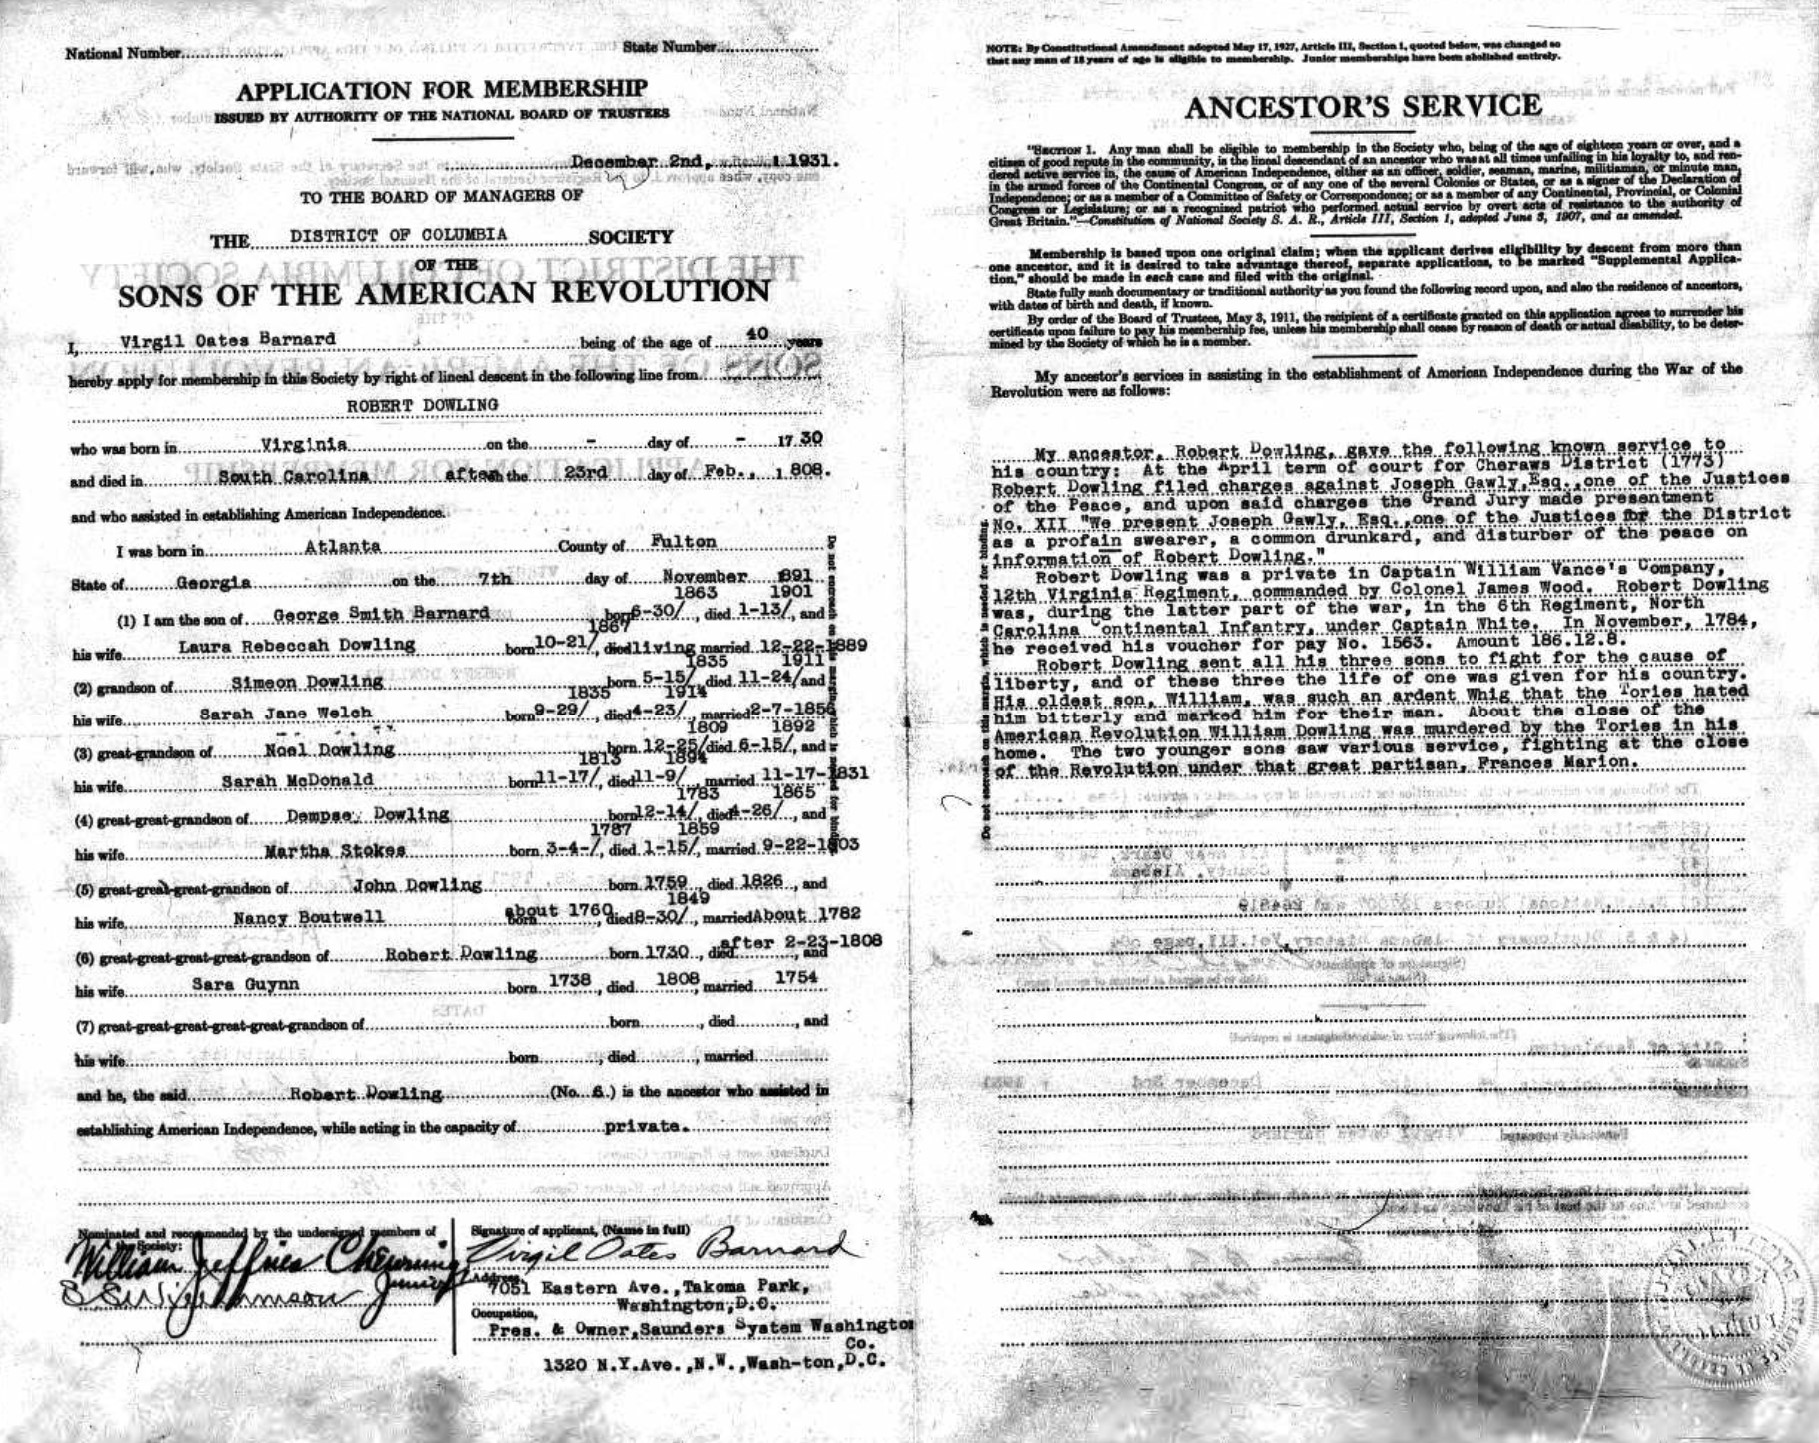 National Number
State Number
APPLICATION FOR MEMBERSHIP
ISSUED BY AUTHORITY OF THE NATIONAL BOARD OF TRUSTEES
December 2nd, 1931.
TO THE BOARD OF MANAGERS OF
THE DISTRICT OF COLUMBIA SOCIETY
OF THE
SONS OF THE AMERICAN REVOLUTION
I, Virgil Oates Barnard being of the age of 40 years
hereby apply for membership in this Society by right of lineal descent in the following line from
ROBERT DOWLING
who was born in Virginia on the - day of - 1730
and died in South Carolina after the 23rd day of Feb., 1808.
and who assisted in establishing American Independence.
I was born in Atlanta County of Fulton
State of Georgia on the 7th day of November 891
(1) I am the son of George Smith Barnard born 6-30/1863, died 1-13/1901, and
his wife Laura Rebeccah Dowling born 10-21/1867, died living married 12-22-1889
(2) grandson of Simeon Dowling born 5-15/1835, died 11-24/1911 and
his wife Sarah Jane Welch born 9-29/1835, died 4-23/1914, married 2-7-1856
(3) great-grandson of Noel Dowling born 12-25/1809 died 6-15/1892, and
his wife Sarah McDonald born 11-17/1813, died 11-9/1894, married 11-17-1831
(4) great-great-grandson of Dempsey Dowling born 12-14/1783, died 4-26/1865, and
his wife Martha Stokes born 3-4-/1787, died 1-15/1859, married 9-22-1803
(5) great-great-great-grandson of John Dowling born 1759, died 1826, and
his wife Nancy Boutwell born about 1760, died 8-30/1849, married About 1782
(6) great-great-great-great-grandson of Robert Dowling born 1730, died after 2-23-1808, and
his wife Sara Guynn born 1738, died 1808, married 1754
(7) great-great-great-great-great-grandson of born , died , and
his wife born , died , married
and he, the said Robert Dowling (No. 6.) is the ancestor who assisted in
establishing American Independence, while acting in the capacity of private.
Nominated and recommended by the undersigned members of
the Society:
William Jeffries Chewning
Junior
Signature of applicant, (Name in full)
Virgil Oates Barnard
Address,
7051 Eastern Ave., Takoma Park,
Washington, D.C.
Occupation,
Pres. & Owner, Saunders System Washington
Co.
1320 N.Y.Ave., N.W., Wash-ton, D.C.
NOTE: By Constitutional Amendment adopted May 17, 1927, Article III, Section 1, quoted below, was changed so
that any man of 18 years of age is eligible to membership. Junior memberships have been abolished entirely.
ANCESTOR'S SERVICE
"SECTION 1. Any man shall be eligible to membership in the Society who, being of the age of eighteen years or over, and a
citizen of good repute in the community, is the lineal descendant of an ancestor who was at all times unfailing in his loyalty to, and ren-
dered active service in, the cause of American Independence, either as an officer, soldier, seaman, marine, militiaman, or minute man,
in the armed forces of the Continental Congress, or of any one of the several Colonies or States, or as a signer of the Declaration of
Independence; or as a member of a Committee of Safety or Correspondence; or as a member of any Continental, Provincial, or Colonial
Congress or Legislature; or as a recognized patriot who performed actual service by overt acts of resistance to the authority of
Great Britain."—Constitution of National Society S. A. R., Article III, Section 1, adopted June 3, 1907, and as amended.
Membership is based upon one original claim; when the applicant derives eligibility by descent from more than
one ancestor, and it is desired to take advantage thereof, separate applications, to be marked "Supplemental Applica-
tion," should be made in each case and filed with the original.
State fully such documentary or traditional authority as you found the following record upon, and also the residence of ancestors,
with dates of birth and death, if known.
By order of the Board of Trustees, May 3, 1911, the recipient of a certificate granted on this application agrees to surrender his
certificate upon failure to pay his membership fee, unless his membership shall cease by reason of death or actual disability, to be deter-
mined by the Society of which he is a member.
My ancestor's services in assisting in the establishment of American Independence during the War of the
Revolution were as follows:
My ancestor, Robert Dowling, gave the following known service to
his country: At the April term of court for Cheraws District (1773)
Robert Dowling filed charges against Joseph Gawly,Esq.,one of the Justices
of the Peace, and upon said charges the Grand Jury made presentment
No. XII "We present Joseph Gawly, Esq.,one of the Justices for the District
as a profain swearer, a common drunkard, and disturber of the peace on
information of Robert Dowling."
Robert Dowling was a private in Captain William Vance's Company,
12th Virginia Regiment, commanded by Colonel James Wood. Robert Dowling
was, during the latter part of the war, in the 6th Regiment, North
Carolina Continental Infantry, under Captain White. In November, 1784,
he received his voucher for pay No. 1563. Amount 186.12.8.
Robert Dowling sent all his three sons to fight for the cause of
liberty, and of these three the life of one was given for his country.
His oldest son, William, was such an ardent Whig that the Tories hated
him bitterly and marked him for their man. About the close of the
American Revolution William Dowling was murdered by the Tories in his
home. The two younger sons saw various service, fighting at the close
of the Revolution under that great partisan, Frances Marion.